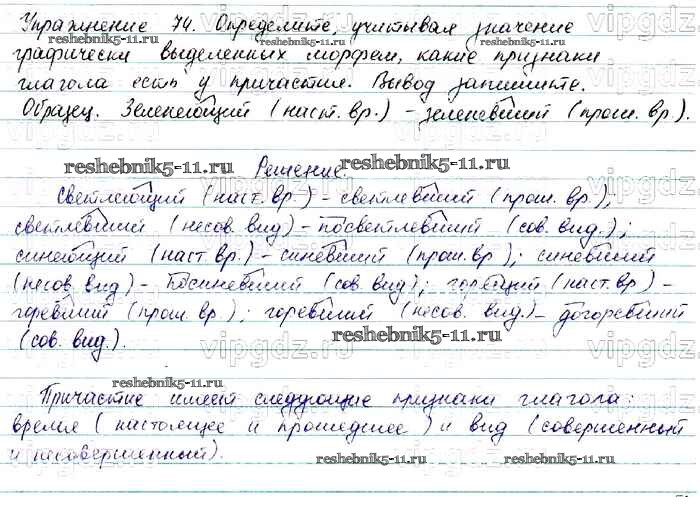 Упражнение 74. Определите, учитывая значение
графически выделенных морфем, какие признаки
глагола есть у причастия. Вывод запишите.
Образец. Зеленеющий (наст. вр.) – зеленевший (прош. вр.).
Решение.
Светлеющий (наст. вр.) – светлевший (прош. вр.);
светлевший (несов. вид) – посветлевший (сов. вид.);
синеющий (наст вр.) – синевший (прош. вр); синевший
(несов. вид) – посиневший (сов. вид); горящий (наст. вр) –
горевший (прош. вр); горевший (несов. вид.) – догоревший
(сов. вид.).
Причастие имеет следующие признаки глагола:
время (настоящее и прошедшее) и вид (совершенный
и несовершенный).
reshebnik5-11.ru
reshebnik5-11.ru
reshebnik5-11.ru
reshebnik5-11.ru
reshebnik5-11.ru
reshebnik5-11.ru
reshebnik5-11.ru
reshebnik5-11.ru
vipgdz.ru